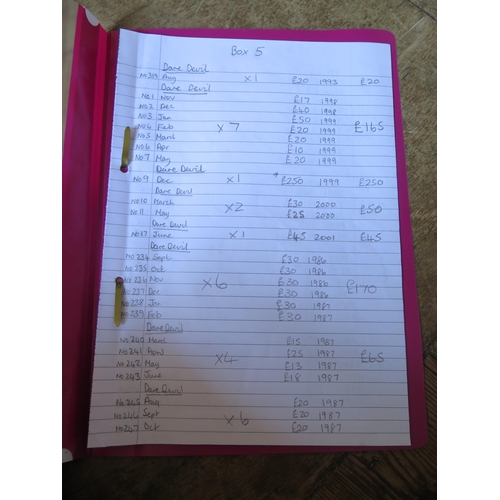 Box 5
Dare Devil
No 319 Aug x1 £20 1993 £20
Dare Devil
No 1 Nov £17 1998
No 2 Dec £40 1998
No 3 Jan £50 1999
No 4 Feb x7 £20 1999 £165
No 5 March £20 1999
No 6 Apr £10 1999
No 7 May £20 1999
Dare Devil
No 9 Dec x1 *£250 1999 £250
Dare Devil
No 10 March £30 2000
No 11 May x2 £25 2000 £50
Dare Devil
No 17 June x1 £45 2001 £45
Dare Devil
No 234 Sept £30 1986
No 235 Oct £30 1986
No 236 Nov x6 £30 1986
No 237 Dec £30 1986 £170
No 238 Jan £30 1987
No 239 Feb £30 1987
Dare Devil
No 240 March £15 1987
No 241 April £25 1987
No 242 May x4 £13 1987 £65
No 243 June £18 1987
Dare Devil
No 245 Aug £20 1987
No 246 Sept x6 £20 1987
No 247 Oct £20 1987